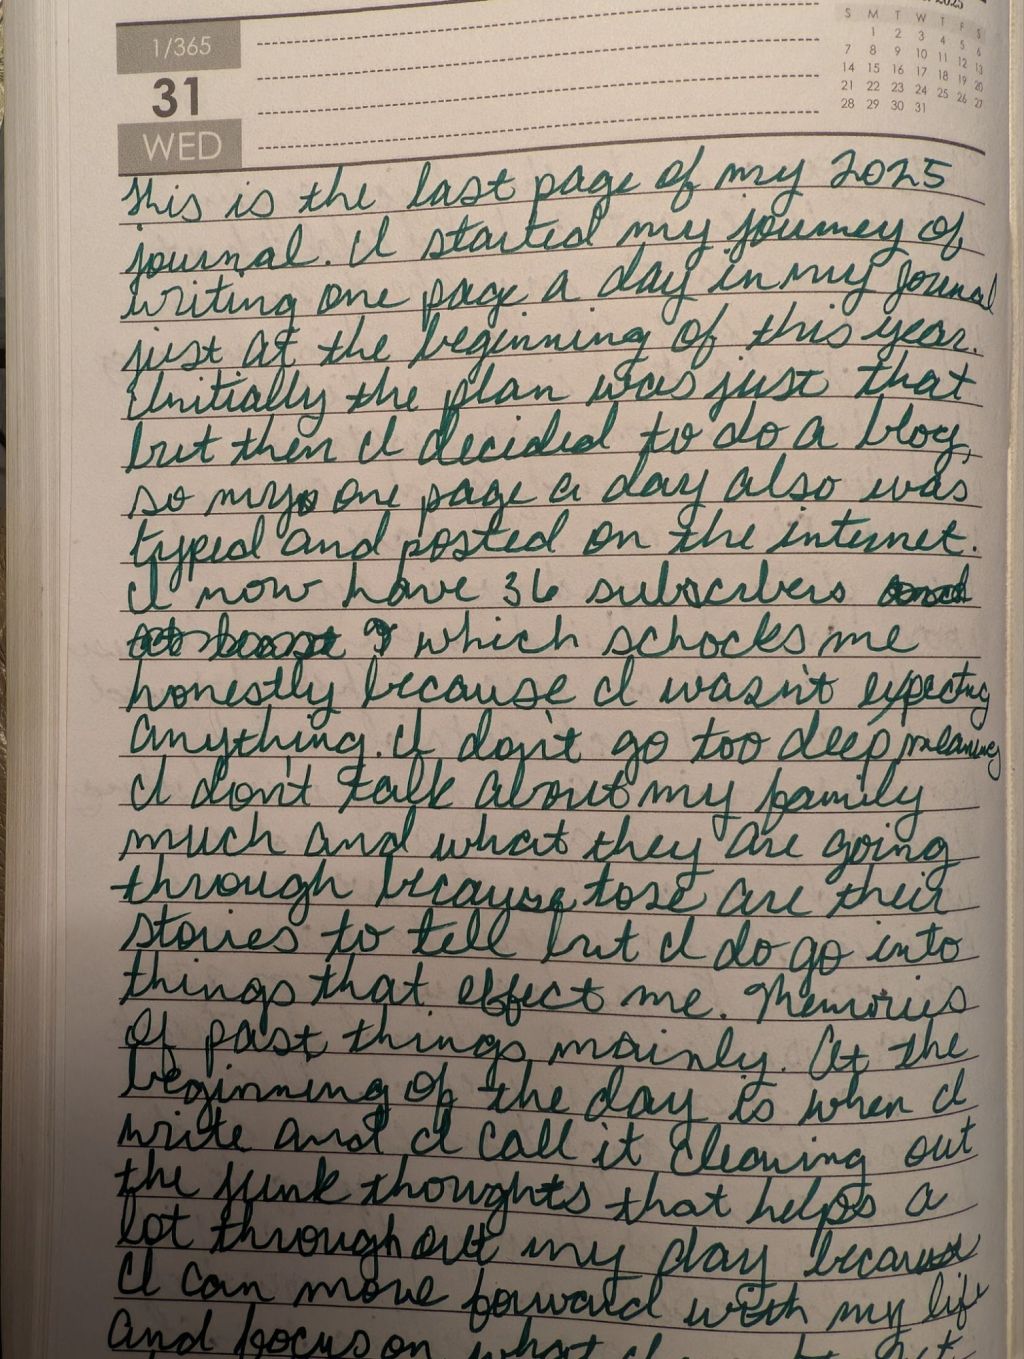 2025
S M T W T F S
1/365
1 2 3 4 5 6
31
7 8 9 10 11 12 13
14 15 16 17 18 19 20
21 22 23 24 25 26 27
28 29 30 31
WED
This is the last page of my 2025
journal. I started my journey of
writing one page a day in my journal
just at the beginning of this year.
Initially the plan was just that
but then I decided to do a blog,
so my one page a day also was
typed and posted on the internet.
I now have 36 subscribers
which schocks me
honestly because I wasn't expecting
anything. I don't go too deep, meaning
I don't talk about my family
much and what they are going
through because tose are their
stories to tell but I do go into
things that effect me. Memories
of past things, mainly. At the
beginning of the day is when I
write and I call it cleaning out
the junk thoughts that helps a
lot throughout my day because
I can move forward with my life
and focus on what I